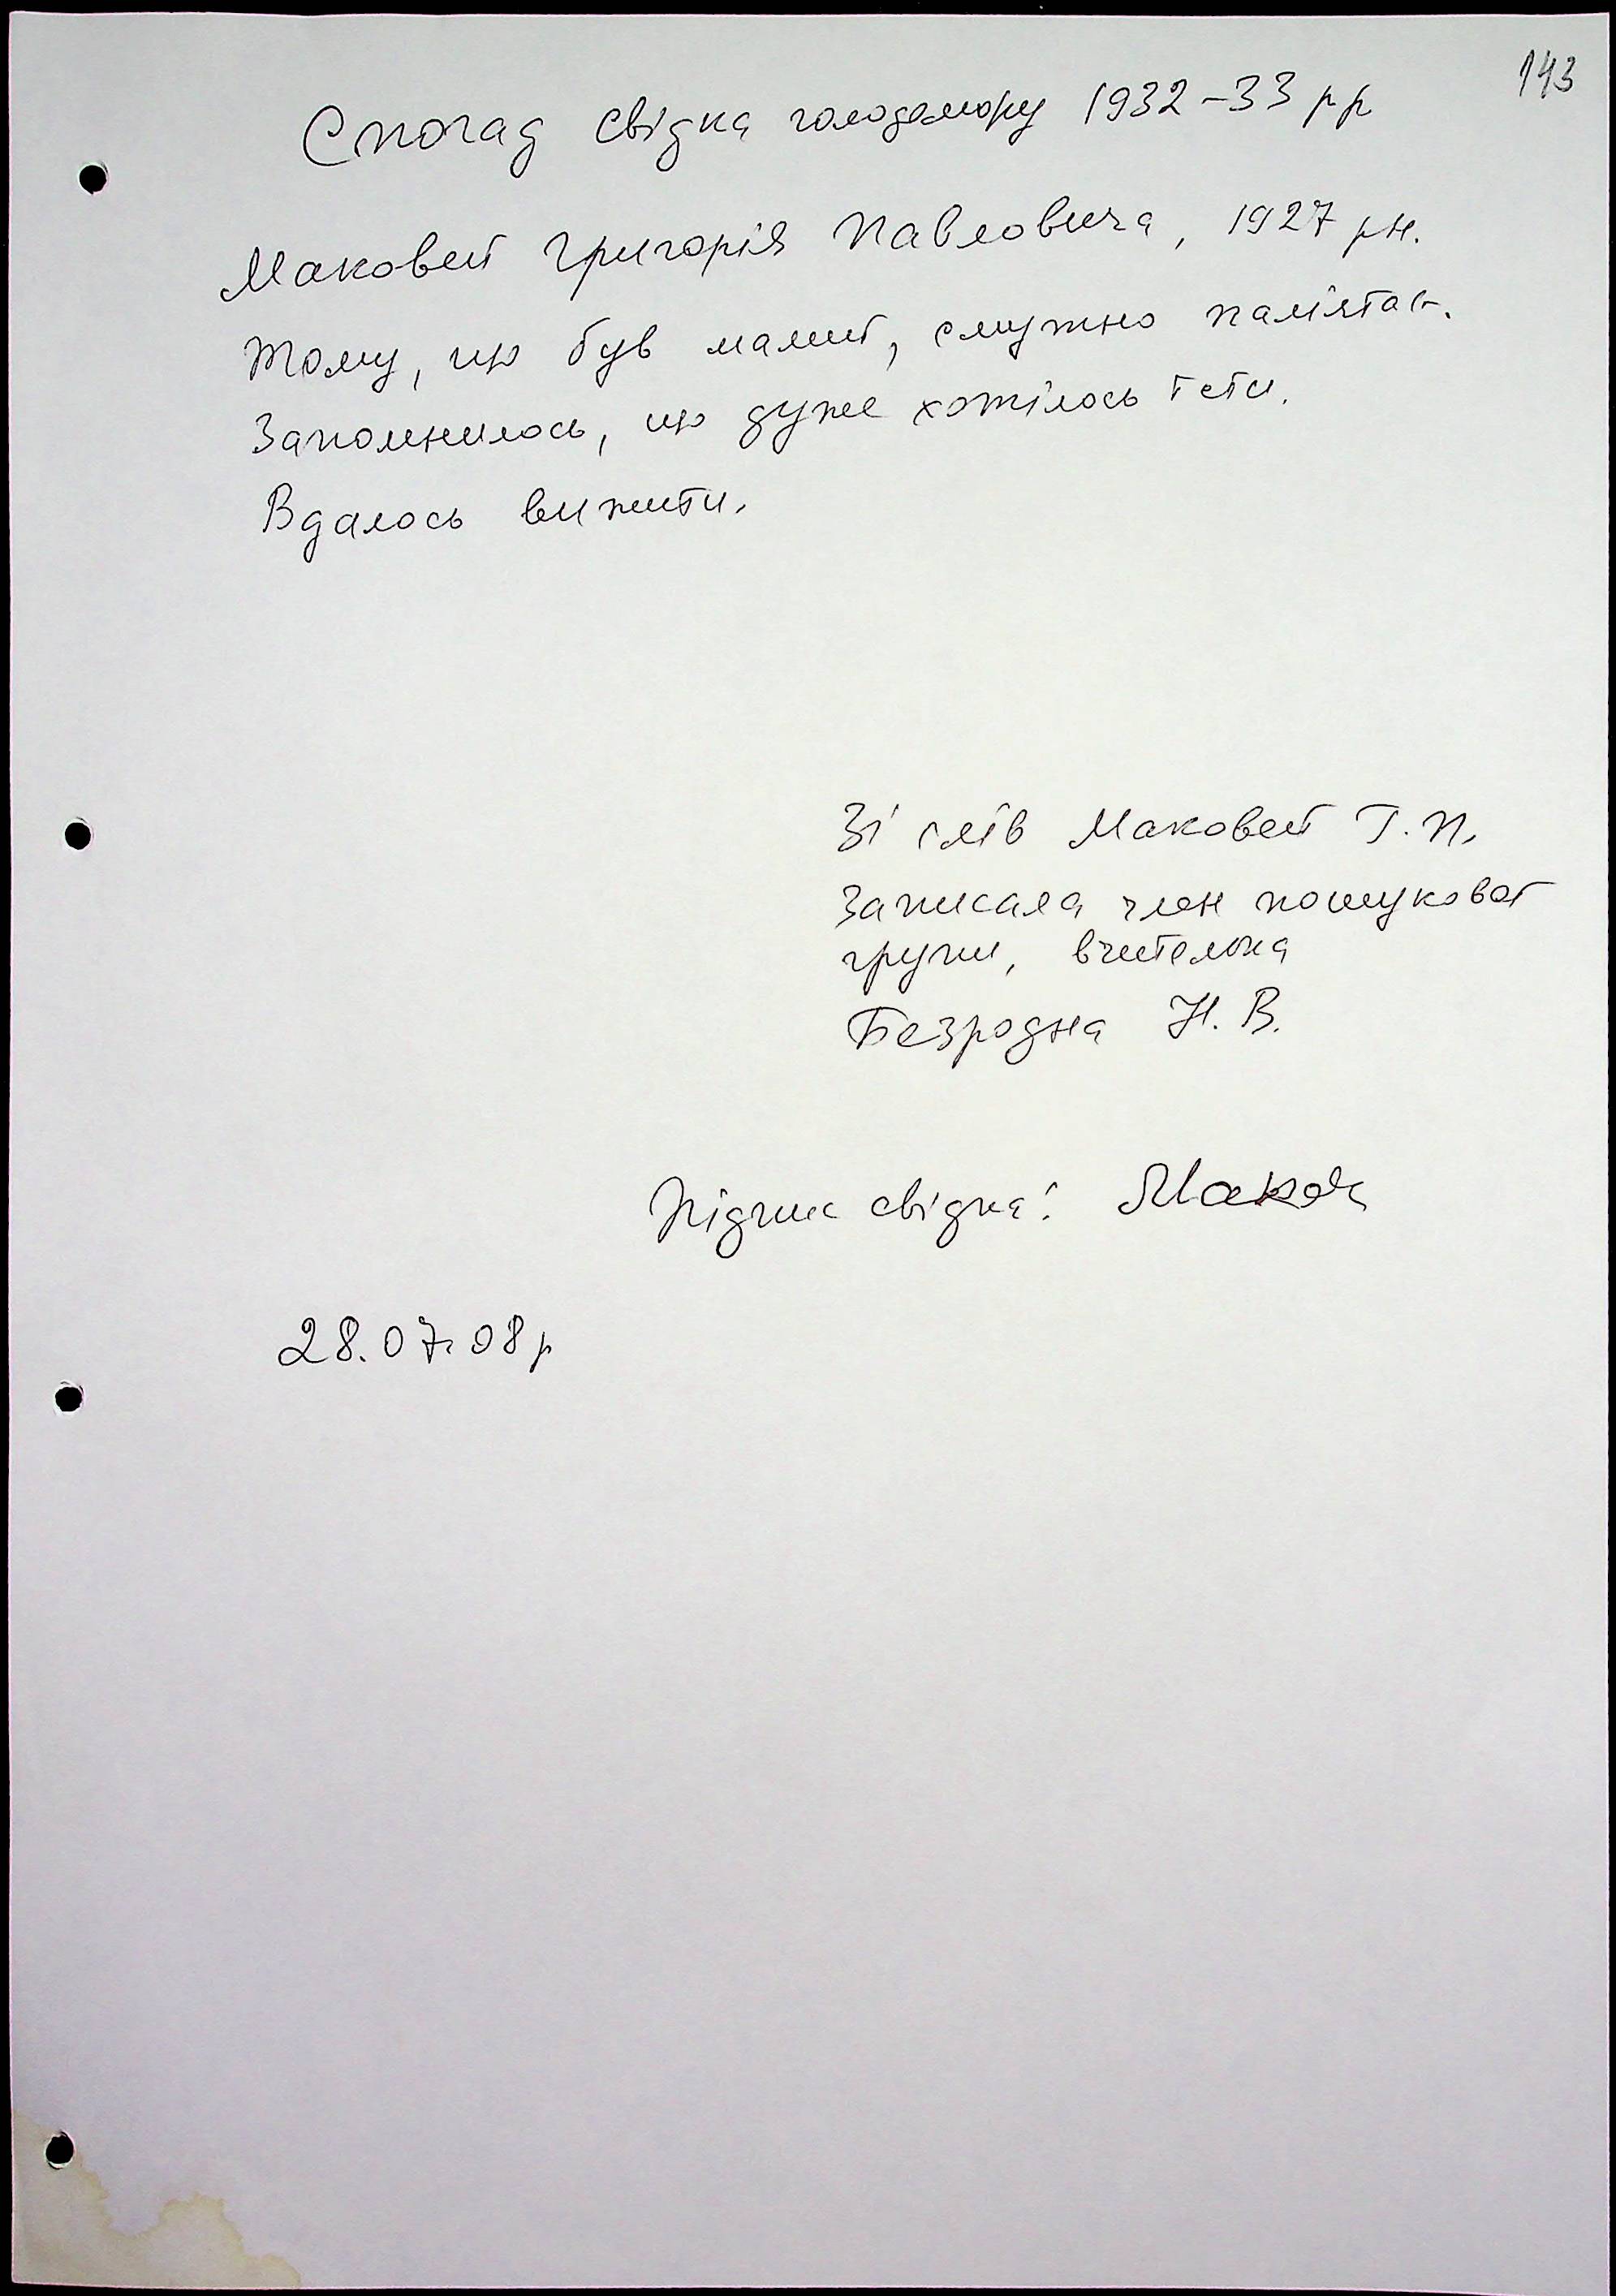 143
Спогад свідка голодомору 1932-33 рр
Маковей Григорія Павловича, 1927 рн.
Тому, що був малий, смутно пам'ятає.
Запомнилось, що дуже хотілось їсти.
Вдалось вижити.
Зі слів Маковей Г.П.
Записала член пошукової
групи, вчителька
Безродна Н.В.
Підпис свідка:
28.07.08р